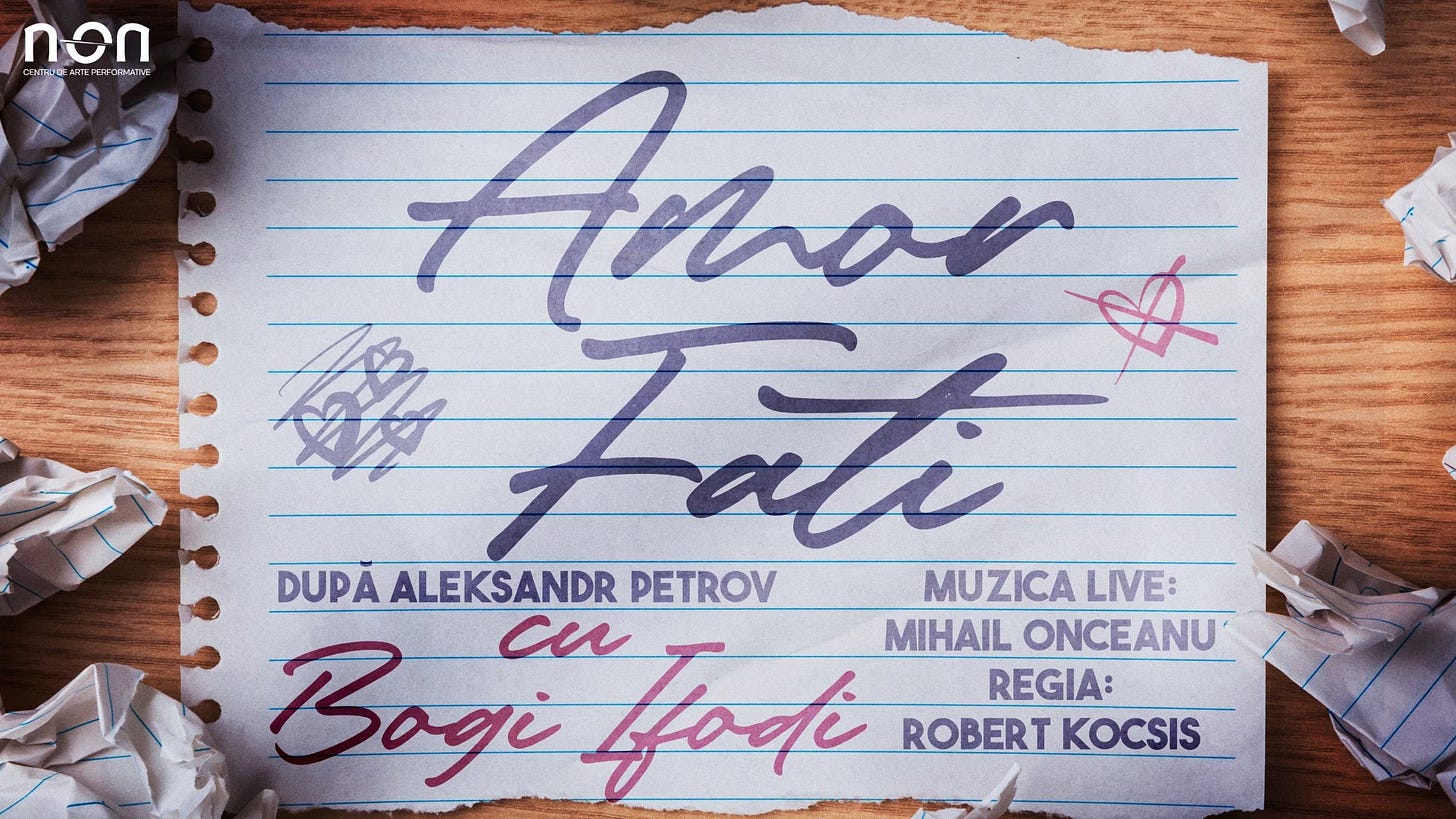 non
CENTRU DE ARTE PERFORMATIVE
Amor
Fati
DUPĂ ALEKSANDR PETROV
cu
Bogi Ifodi
MUZICA LIVE:
MIHAIL ONCEANU
REGIA:
ROBERT KOCSIS